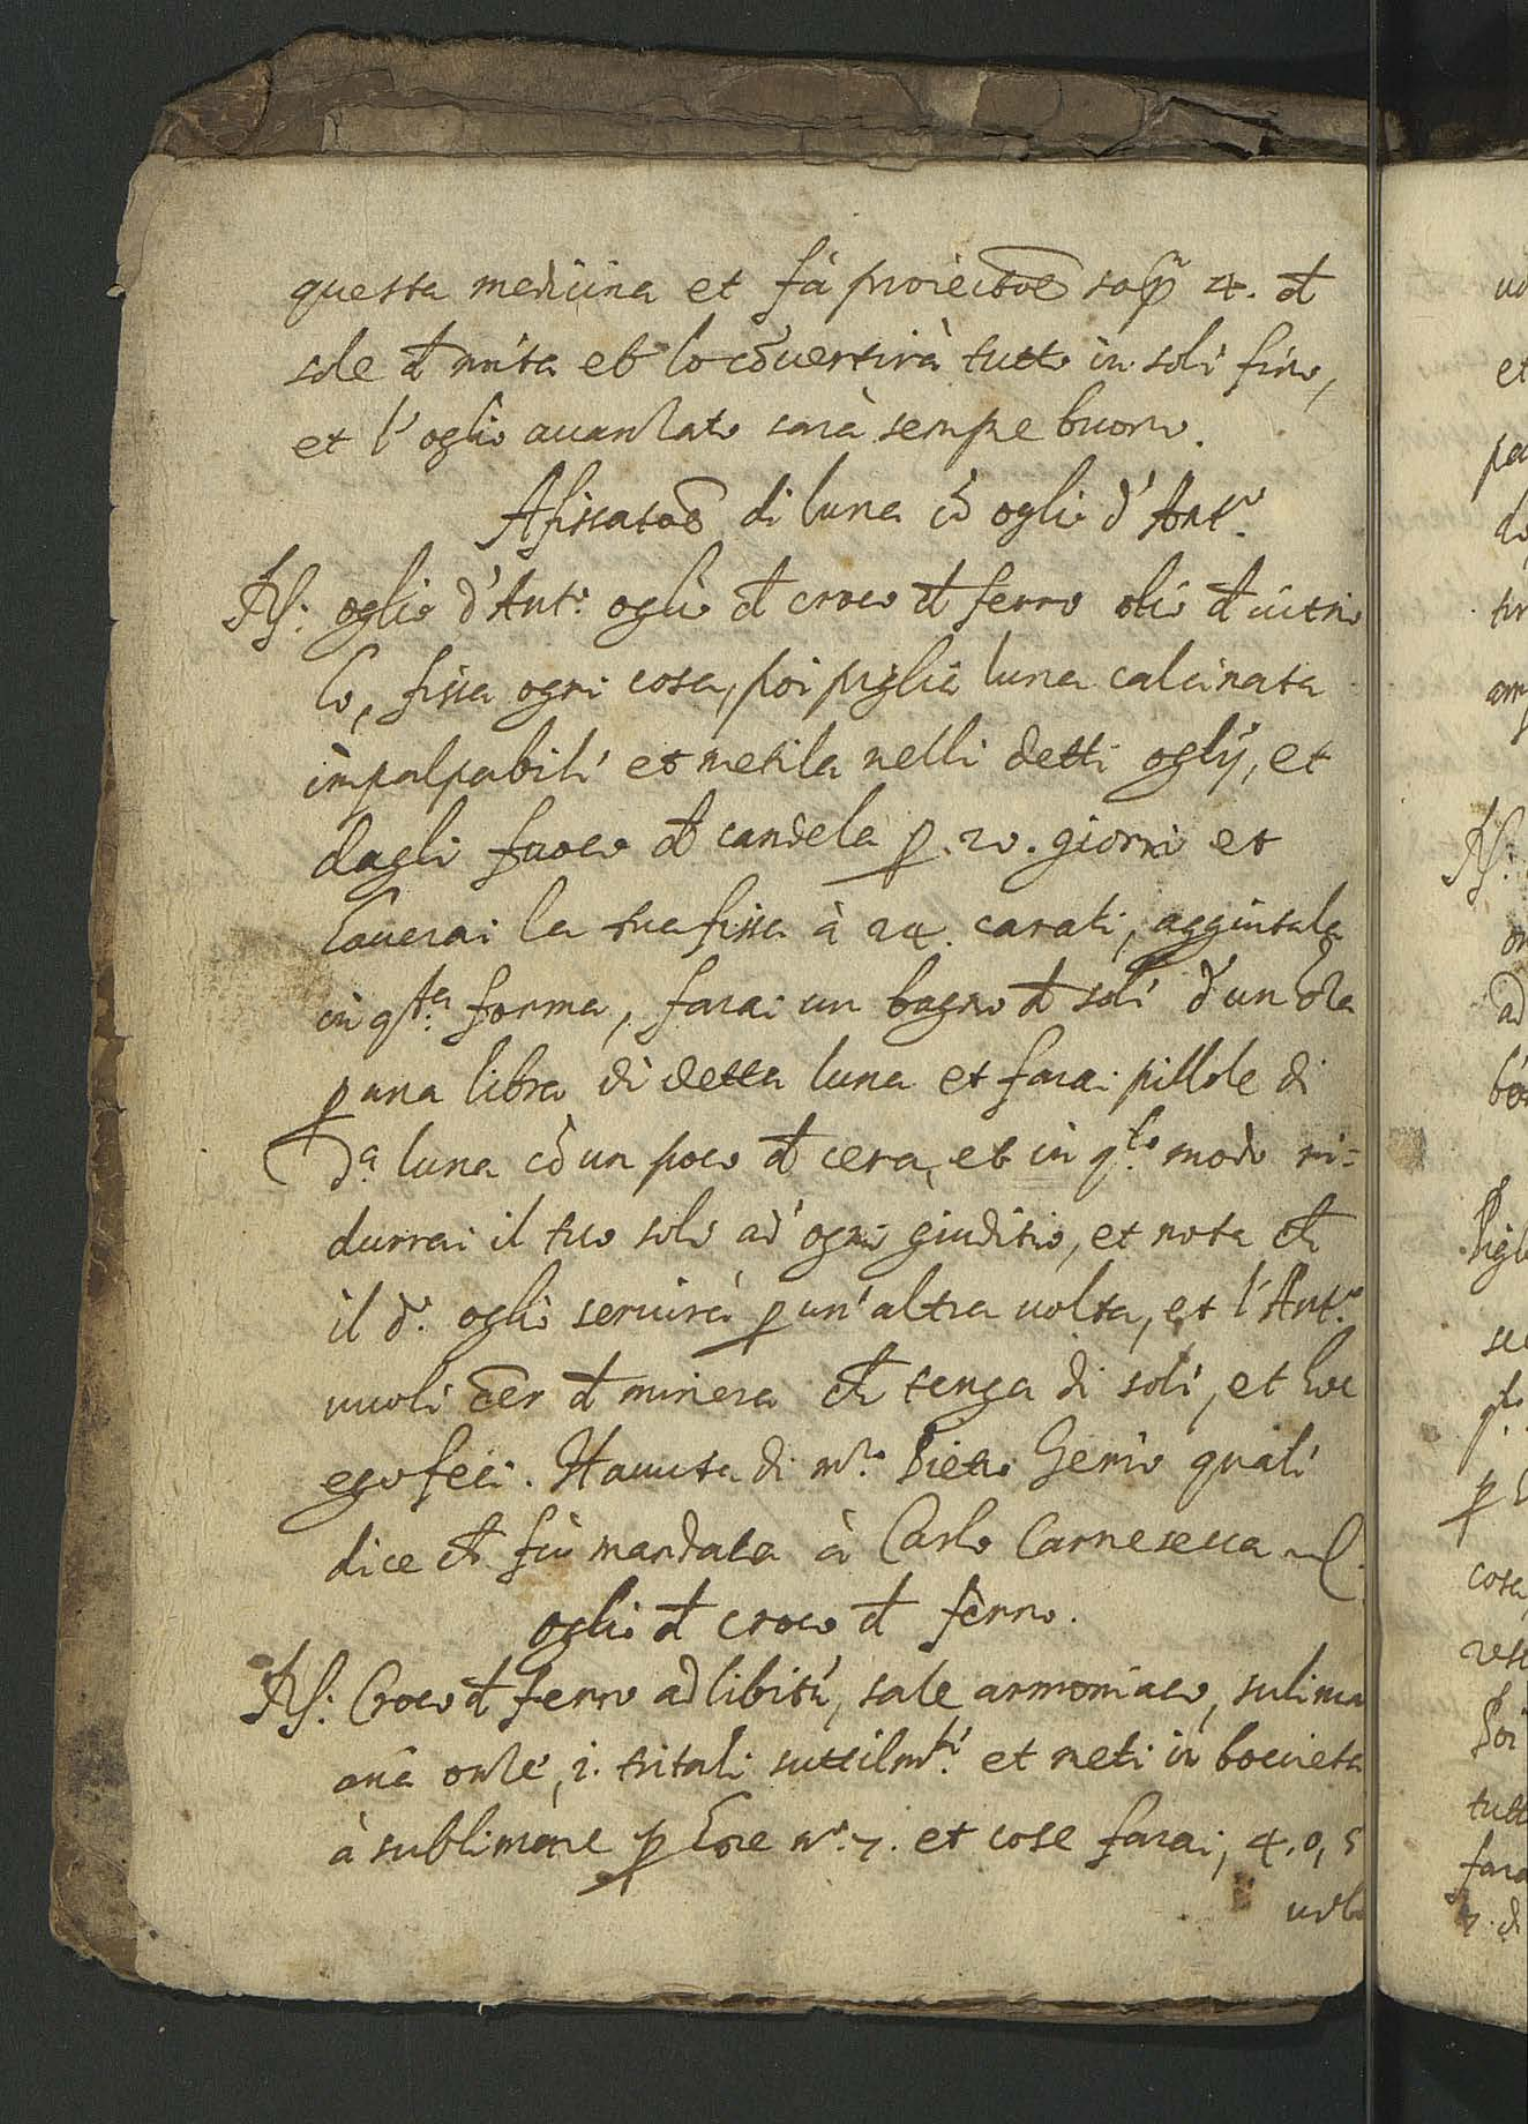 questa medicina et fà proiectõe sop.ª 4. đ
sole đ mita et lo cõuertirà tutto in soli fino,
et l'oglio auanzato sarà sempre buono.
Afissatõe di luna cõ oglio d'Ant.º
Rᶊ: oglio d'Ant.º oglio đ croco đ ferro olio đ uitrio
lo, fissa ogni cosa, poi piglia luna calcinata
impalpabili et metila nelli detti oglij, et
dagli fuoco đ candela ꝑ. 20. giorni et
Cauerai la tua fissa à 24. carati, aggiutala
in q.ta forma, farai un bagno đ soli d'un oza
ꝑ una libra di detta luna et farai pillole di
d.ª luna cõ un poco đ cera, et in q.to modo ri=
durrai il tuo solo ad'ogni giuditio, et nota ch̃
il d.º oglio seruirà ꝑ un'altra uolta, et l'Ant.º
uuoli c̃er đ minera ch̃ tenga di soli, et hoc
ego feci. Hauuta di m.ro Pietro Gemio quali
dice ch̃ fù mandata à Carlo Carnesecca
oglio đ croco đ ferro.
Rᶊ: Croco đ ferro ad libitũ, sale armoniaco, sulima
anã onze, 2. tritali suttilm.ti et meti in bocieta
à sublimare ꝑ hore n.º 7. et cose farai, 4. o, 5
uol